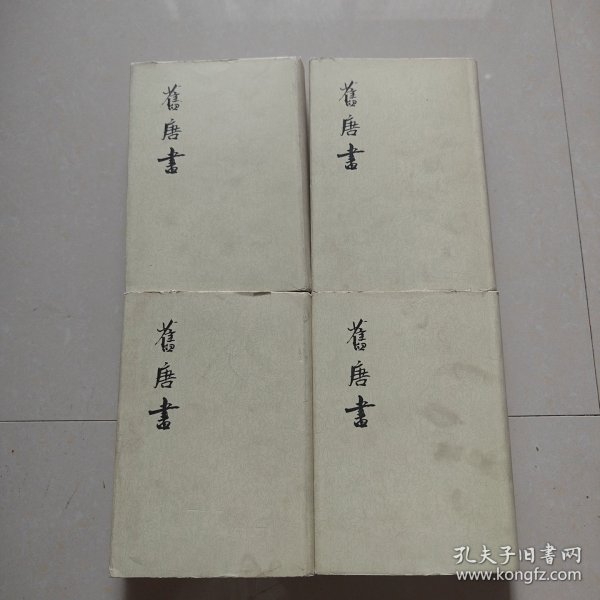 舊唐書
舊唐書
舊唐書
舊唐書
孔夫子旧书网
www.kongfz.com